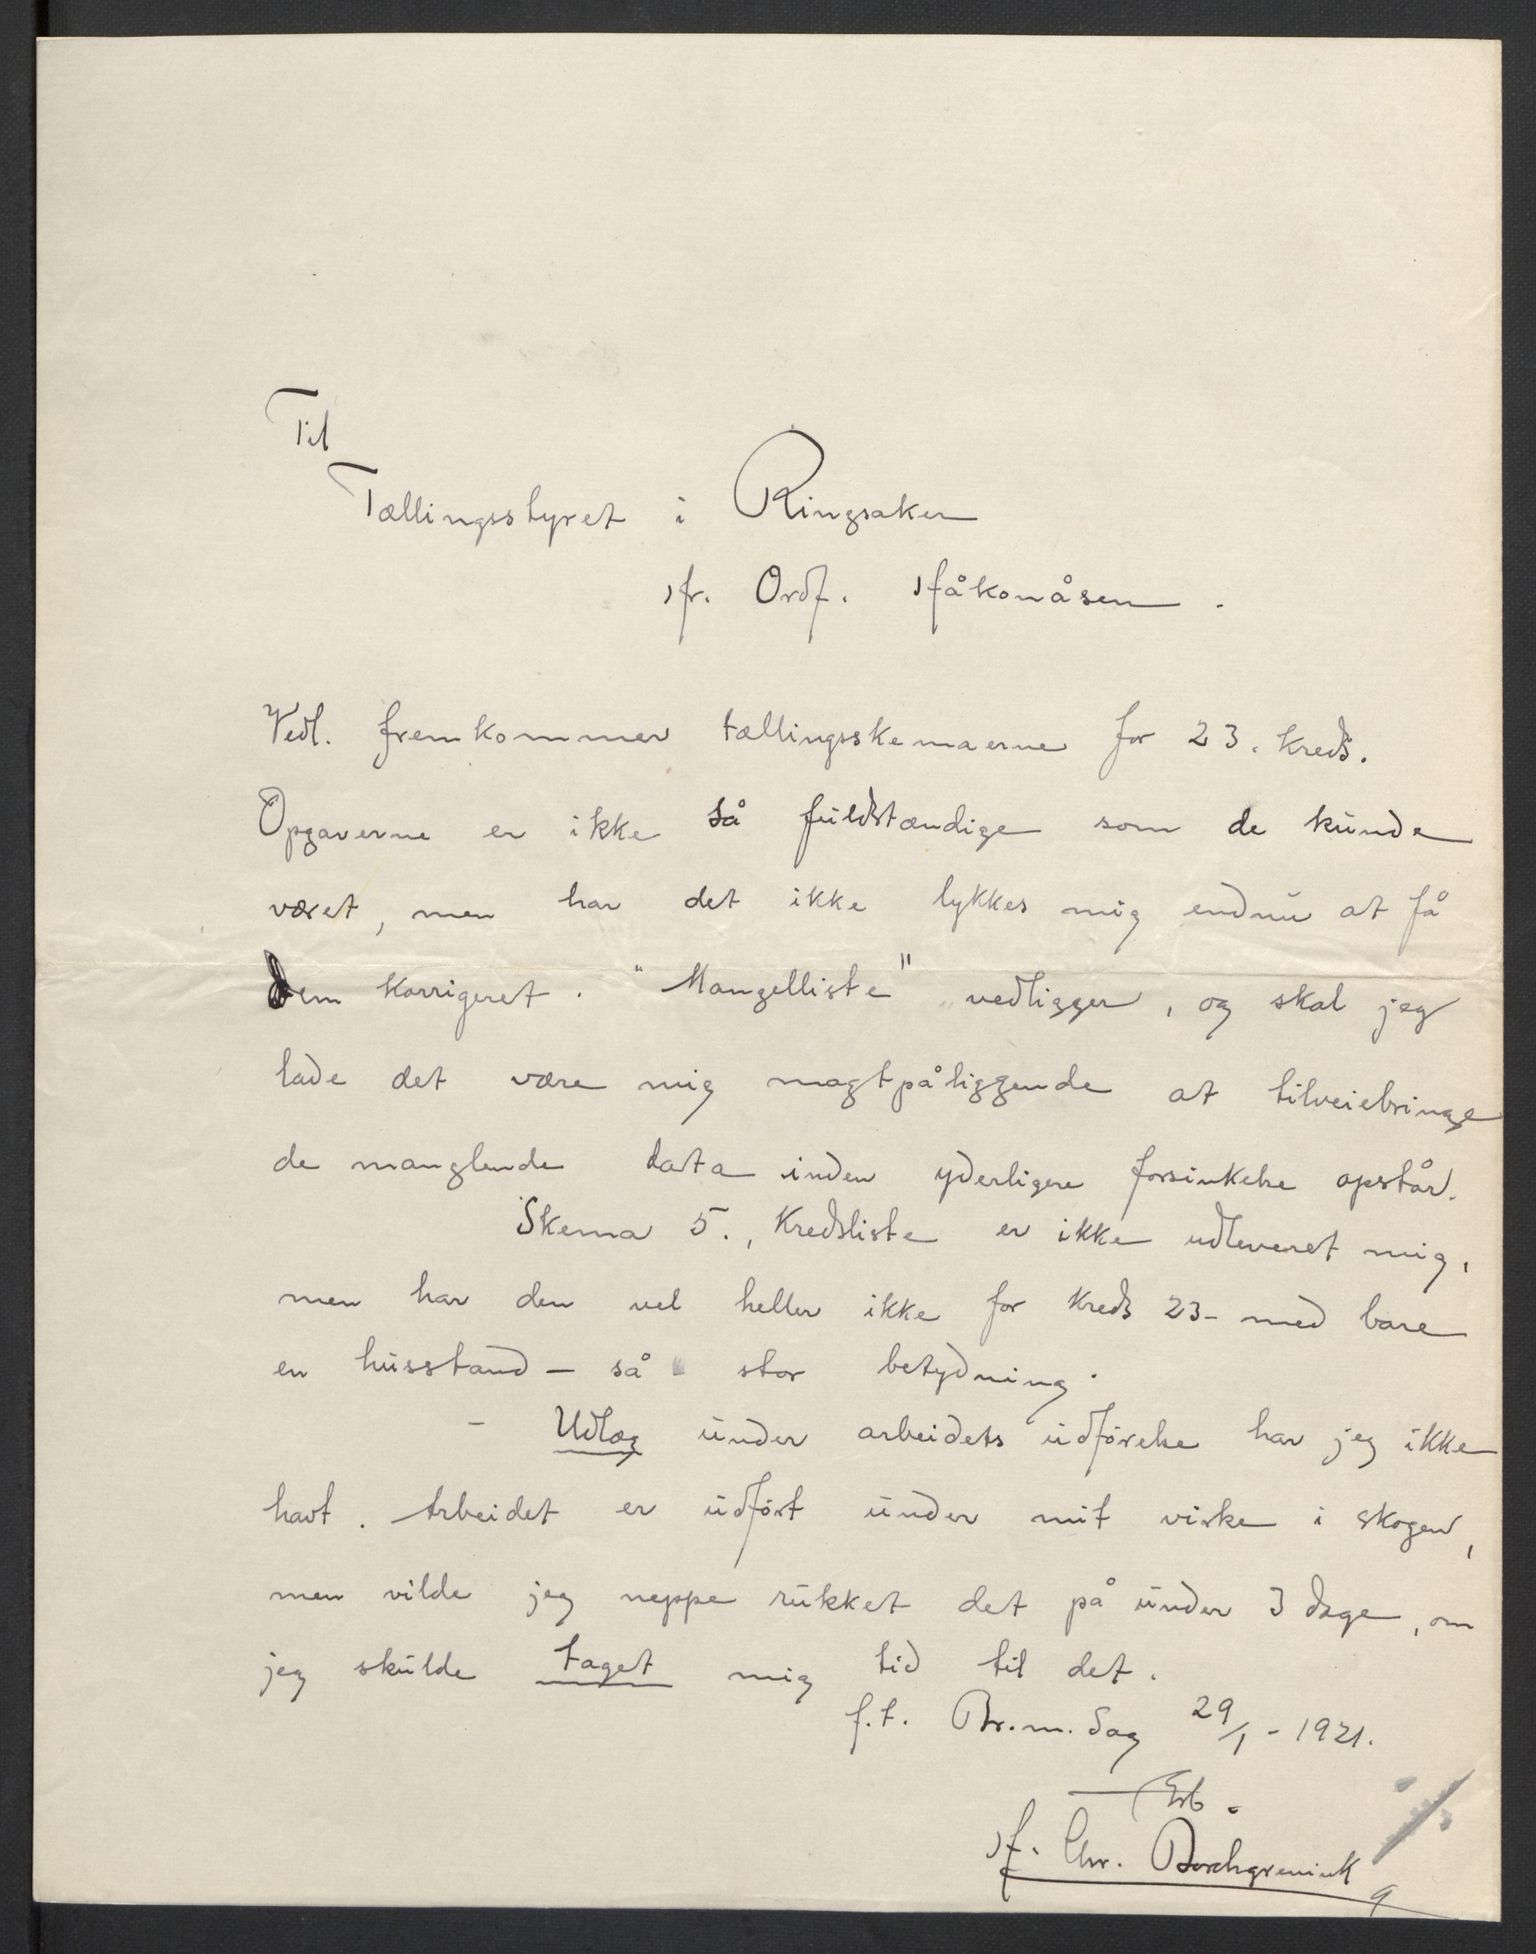 Til
Tællingsstyret i Ringsaker
Hr. Ordf. Håkonåsen.
Vedl. fremkommer tællingsskemaerne for 23. kreds.
Opgaverne er ikke så fuldstændige som de kunde
været, men har det ikke lykkes mig endnu at få
dem korrigeret. "Mangelliste" vedligger, og skal jeg
lade det være mig magtpåliggende at tilveiebringe
de manglende data inden yderligere forsinkelse opstår.
Skema 5., Kredsliste er ikke udleveret mig,
men har den vel heller ikke for kreds 23 - med bare
en husstand - så stor betydning.
- Udlæg under arbeidets udførelse har jeg ikke
havt. Arbeidet er udført under mit virke i skogen,
men vilde jeg neppe rukket det på under 3 dage, om
jeg skulde taget mig tid til det.
f.t. Br.m.dag 29/1 - 1921.
Erb.
H. Chr. Borchgrevink
9